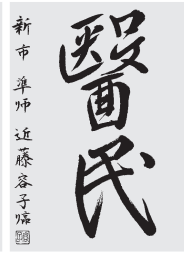 醫民
新市 準師 近藤容子臨